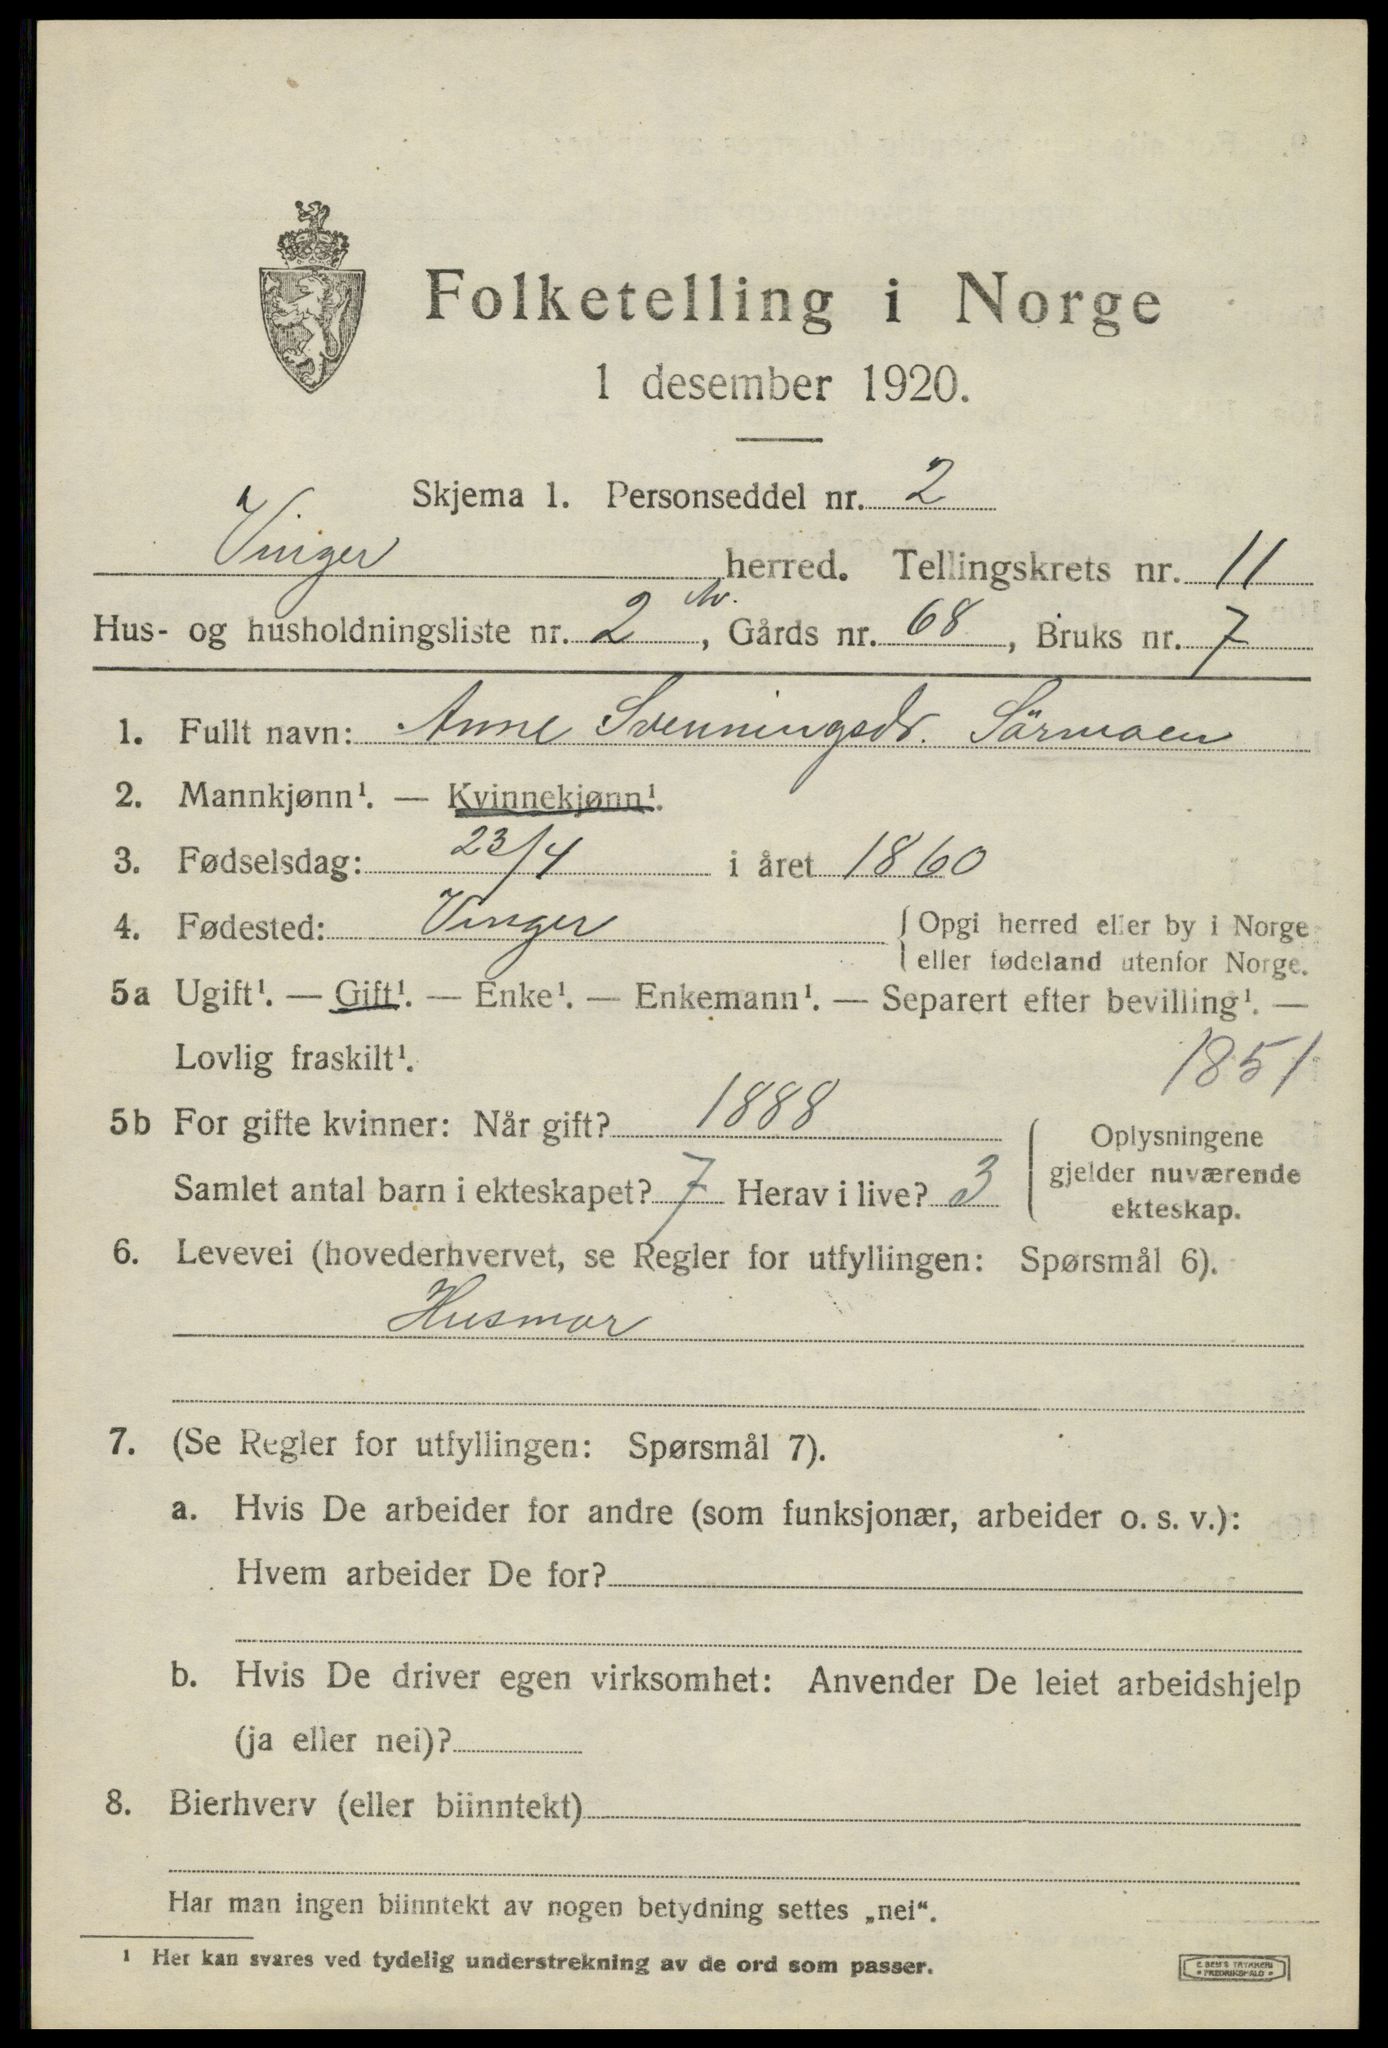 Folketelling i Norge
1 desember 1920.
Skjema 1. Personseddel nr. 2
Vinger herred. Tellingskrets nr. 11
Hus- og husholdningsliste nr. 2, Gårds nr. 68, Bruks nr. 7
1. Fullt navn: Anne Svenningsdr. Särmoen
2. Mannkjønn¹. — Kvinnekjønn¹.
3. Fødselsdag: 23/4 i året 1860
4. Fødested: Vinger { Opgi herred eller by i Norge
eller fødeland utenfor Norge.
5a Ugift¹. — Gift¹. — Enke¹. — Enkemann¹. — Separert efter bevilling¹. —
Lovlig fraskilt¹. 1851
5b For gifte kvinner: Når gift? 1888
Samlet antal barn i ekteskapet? 7 Herav i live? 3
{ Oplysningene
gjelder nuværende
ekteskap.
6. Levevei (hovederhvervet, se Regler for utfyllingen: Spørsmål 6).
Husmor
7. (Se Regler for utfyllingen: Spørsmål 7).
a. Hvis De arbeider for andre (som funksjonær, arbeider o. s. v.):
Hvem arbeider De for?
b. Hvis De driver egen virksomhet: Anvender De leiet arbeidshjelp
(ja eller nei)?
8. Bierhverv (eller biinntekt)
Har man ingen biinntekt av nogen betydning settes „nei“.
¹ Her kan svares ved tydelig understrekning av de ord som passer.
E. SEM'S TRYKKERI
• FREDRIKSHALD •